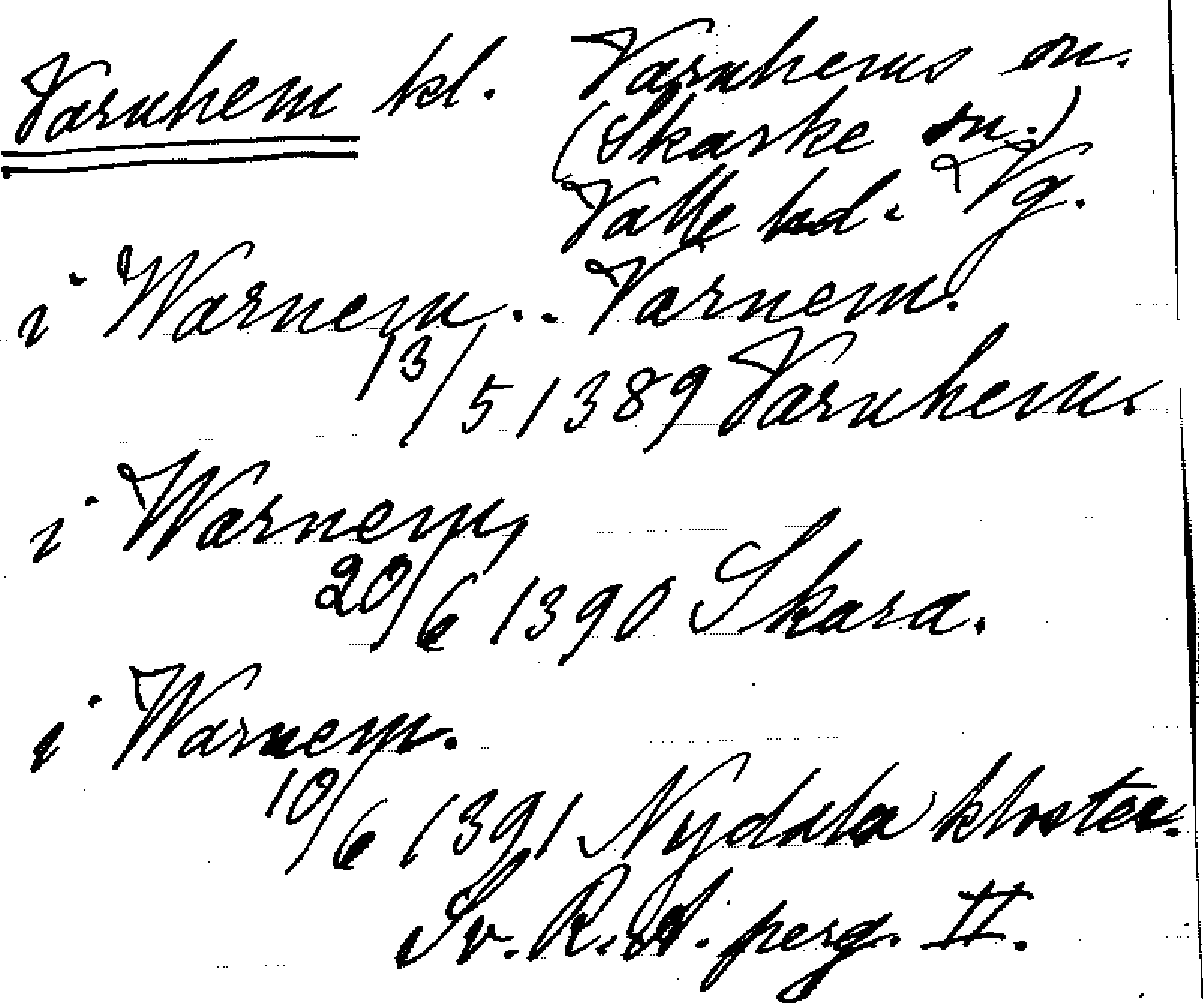 Varnhem kl. Varnhems sn.
(Skarke sn.)
Valle hd. Vg.
i Warnem .. Varnem.
13/5 1389 Varnhem.
i Warnem,
20/6 1390 Skara.
i Warnem.
10/6 1391 Nydala kloster.
Sv. R. A. perg. II.